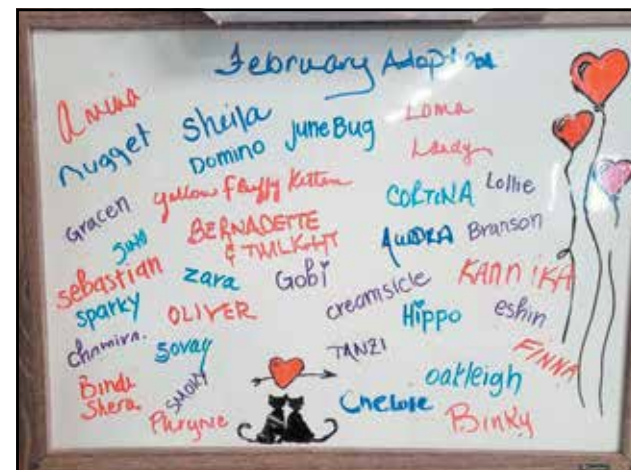 February Adoption
Anina
Sheila
JuneBug
Loma
nugget
Domino
Landy
yellow fluffy Kitten
CORTINA
Lollie
Gracen
BERNADETTE
& TWILIGHT
AUDRA
Branson
Juno
sebastian
zara
Gobi
creamsicle
KANNIKA
sparky
OLIVER
Hippo
eshin
Chamira.
Sovay
TANZI
FINNA
Bindi
Shera
SMOKY
Phrynie
oatleigh
Binky